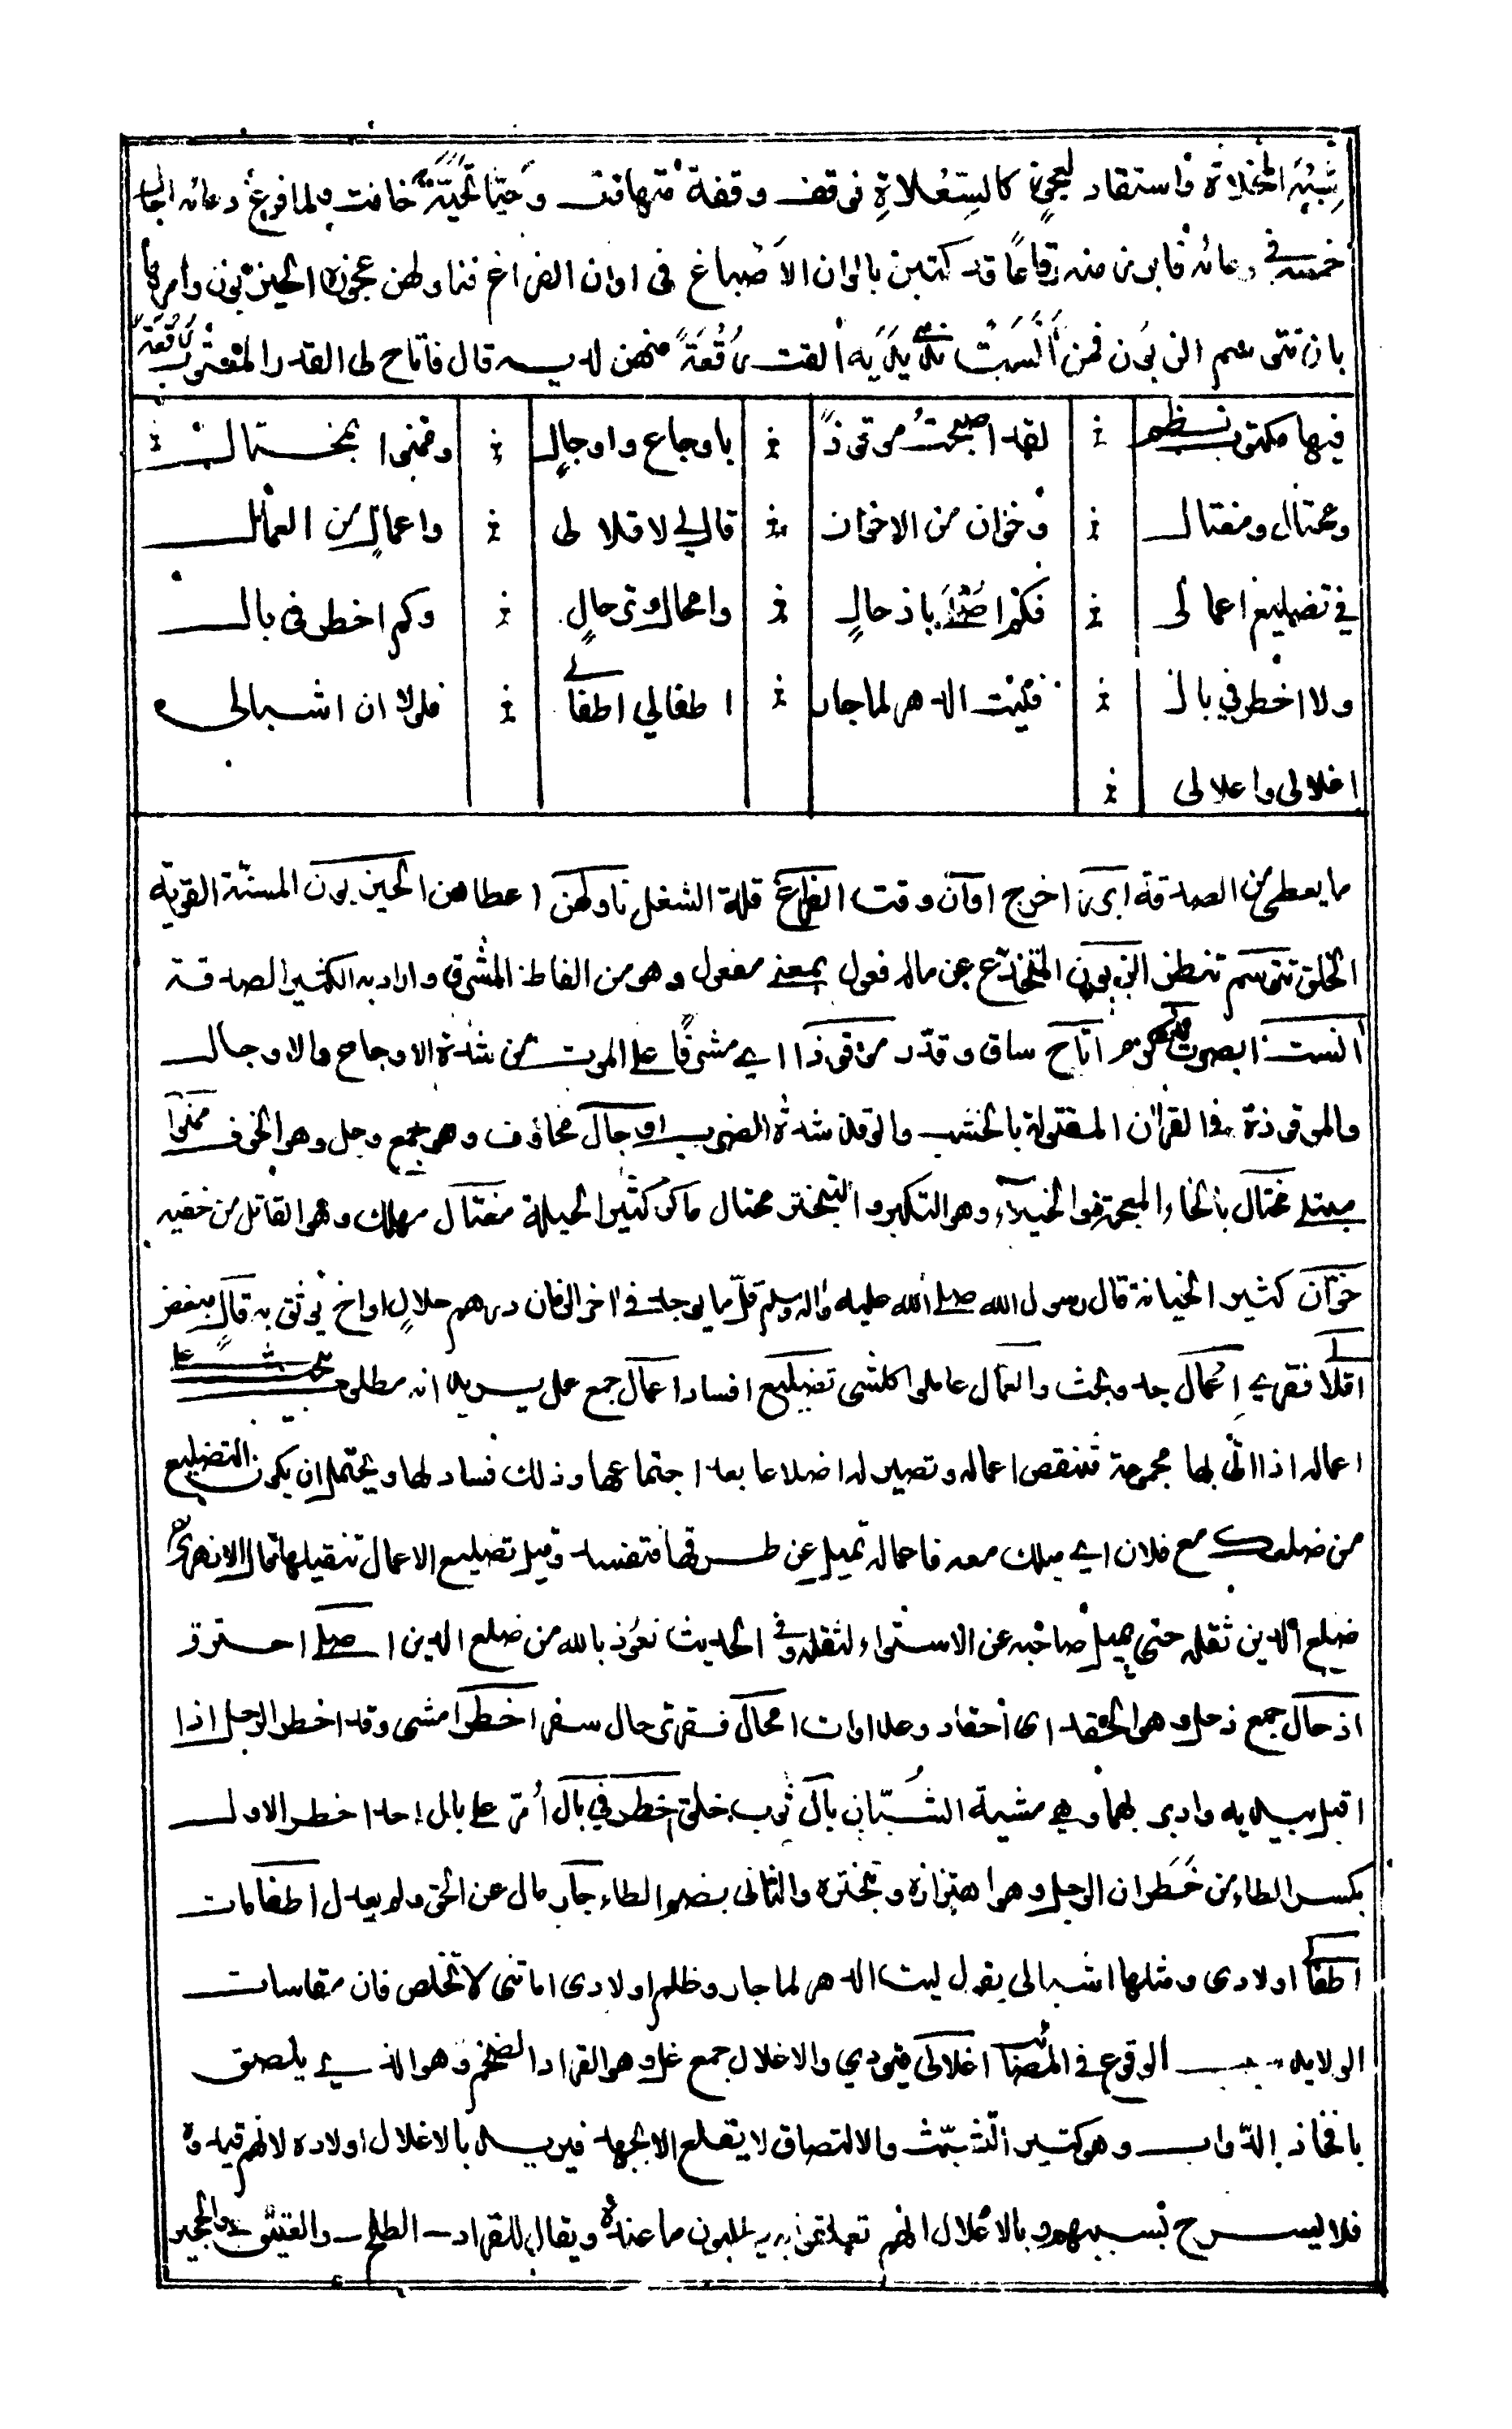 شِبْهَ المخلاة واستقاد لعجوز كالسِّعْلاةِ فوقف وقفة متهافت وحيّا تحيّةَ خافت ولما فرغ دعائه اجال
خمسه في وعائه فابرز منه رقاعًا قد كتبن بالوان الاصباغ فى اوان الفراغ فناولهن عجوزه الحيزبون وامرها
بان تتوسم الزبون فمن انَسَتْ ندى يديه القت رقعةً منهن لديه قال فاتاح لى القدر المعتوب رقعةً
فيها مكتوب نظم لقد اصبحتُ موقوذًا باوجاع واوجالٍ وممنوا بمختال
ومحتال ومغتال وخوان من الاخوان قالٍ لي لاقلالى واعمالٍ من العمال
في تضليع اعمالى فكم اصلى باذحالٍ وامحال وترحالٍ وكم اخطر فى بال
ولا اخطر في بال فليت الدهر لما جار اطفا لي اطفالي فلولا ان اشبالى
اغلالى واعلالى
ما يعطى من الصدقة ابرز اخرج اوان وقت الفراغ قلة الشغل ناولهن اعطاهن الحيزبون المسنّة القوية
الخلق تتوسم تنظر الزبون المنخدع عن ماله فعول بمعنى مفعول وهو من الفاظ المشرق واراد به الكثير الصدقة
انست ابصرت اتاح ساق وقدّر موقوذا اي مشرفًا على الموت من شدة الاوجاع والاوجال
والموقوذة فى القرآن المقتولة بالخشب والوقذ شدة الضرب اوجال مخاوف وهو جمع وجل وهو الخوف ممنوا
مبتلى مختال بالخاء المعجمة ذوا الخيلاء وهو التكبر والتبختر محتال ماكر كثير الحيلة مغتال مهلك وهو القاتل من خفيه
خوّان كثير الخيانة قال رسول الله صلى الله عليه وآله وسلم قلّ ما يوجد في اخر الزمان درهم حلالٍ او اخ يوثق به قالٍ مبغض
اقلالي فقري اِعمال جد وبحث والعمال عاملوا كلشى تضليع افساد اعمال جمع عمل يريد انه مطلوب
اعماله اذا اتى بها مجموعة فتنقص اعماله وتصير له اضلاعا بعد اجتماعها وذلك فساد لها ويحتمل ان يكون التضليع
من ضلعك مع فلان اي ميلك معه فاعماله تميل عن طرقها فتفسد وقيل تضليع الاعمال تثقيلها قال الازهري
ضلع الدين ثقله حتى يميل صاحبه عن الاستواء لثقله وفى الحديث نعوذ بالله من ضلع الدين اصلى احترق
اذحال جمع ذحل وهو الحقد اى احقاد وعداوات امحال فقر ترحال سفر اخطر امشى وقد اخطر الرجل اذا
اقبل بيديه وادبر بهما وهي مشية الشُبّان بال ثوب خلق اخطر في بال اُمرّ على بال احد اخطر الاول
بكسر الطاء من خَطَران الرجل وهو اهتزازه وتبختره والثانى بضم الطاء جار مال عن الحق ولم يعدل اطفا امات
اطفالي اولادى ومثلها اشبالى يقول ليت الدهر لما جار وظلم اولادى اماتنى لاتخلص فان مقاسات
الولايد الوقوع في المصائب اغلالى قيودي والاغلال جمع غل وهو القراد الضخم وهو الذي يلصق
بافخاذ الدّواب وهو كثير التشبّث والالتصاق لا يقلع الا بجهد فيريد بالاغلال اولاده لانهم قيدوه
فلا يسرح بسببهم وبالاعلال انهم يطلبون ما عنده ويقال للقراد الطلح والفتيق والحجير